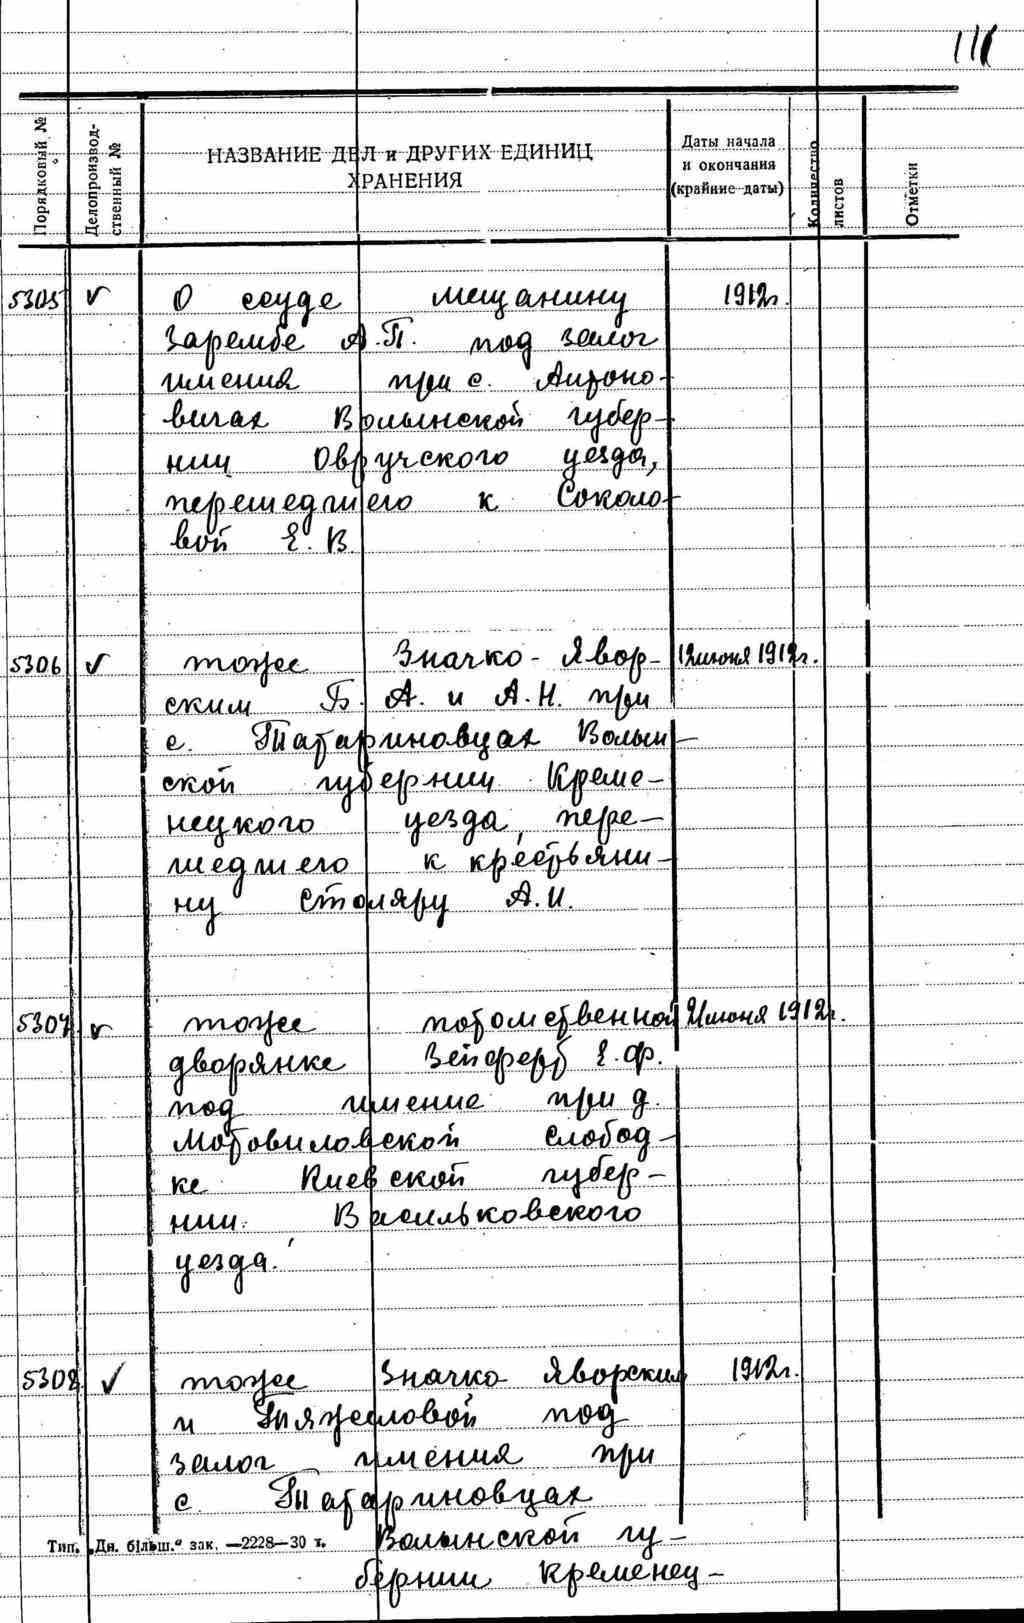 111
Порядковый №
Делопроизвод-
ственный №
НАЗВАНИЕ ДЕЛ и ДРУГИХ ЕДИНИЦ
ХРАНЕНИЯ
Даты начала
и окончания
(крайние даты)
Количество
листов
Отметки
5305 ✓ О ссуде мещанину 1912г.
Зарембе А.П. под залог
имения при с. Антоно-
вичах Волынской губер-
нии Овручского уезда,
перешедшего к Соколо-
вой Е. В.
5306 ✓ тоже Значко-Явор- 12июня 1912г.
ским Б. А. и А.Н. при
с. Татариновцах Волын-
ской губернии Креме-
нецкого уезда, пере-
шедшего к крестьяни-
ну Столяру А.И.
5307 ✓ тоже потомственной 21июня 1912г.
дворянке Зейферт Е.Ф.
под имение при д.
Мотовиловской слобод-
ке Киевской губер-
нии Васильковского
уезда.
5308 ✓ тоже Значко Яворским 1912г.
и Тяжеловой под
залог имения при
с. Татариновцах
Волынской гу-
бернии Кременец-
Тип. „Дн. більш.“ зак. —2228—30 т.